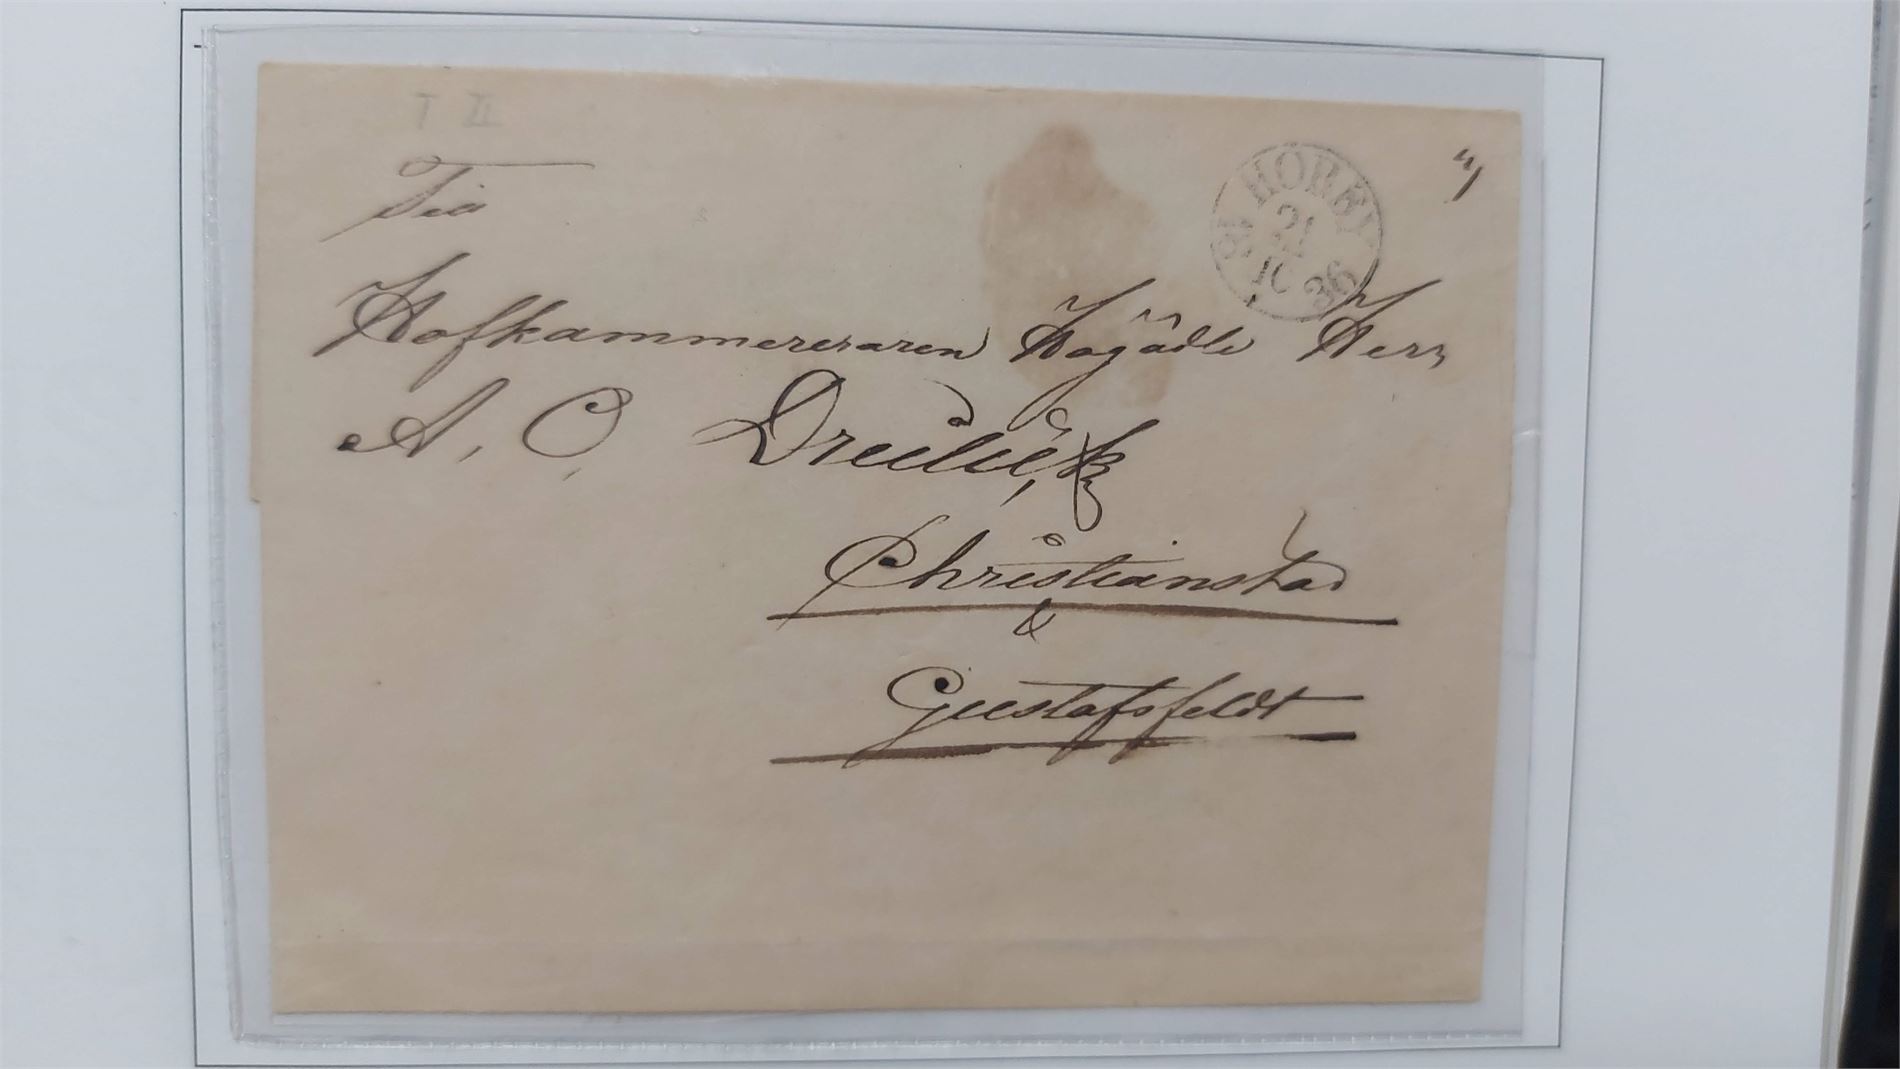 T II
Till
18 HÖRBY 36
21
10
Hofkammereraren Högädle Herr
A. O.
Christianstad
&
Gustafsfeldt